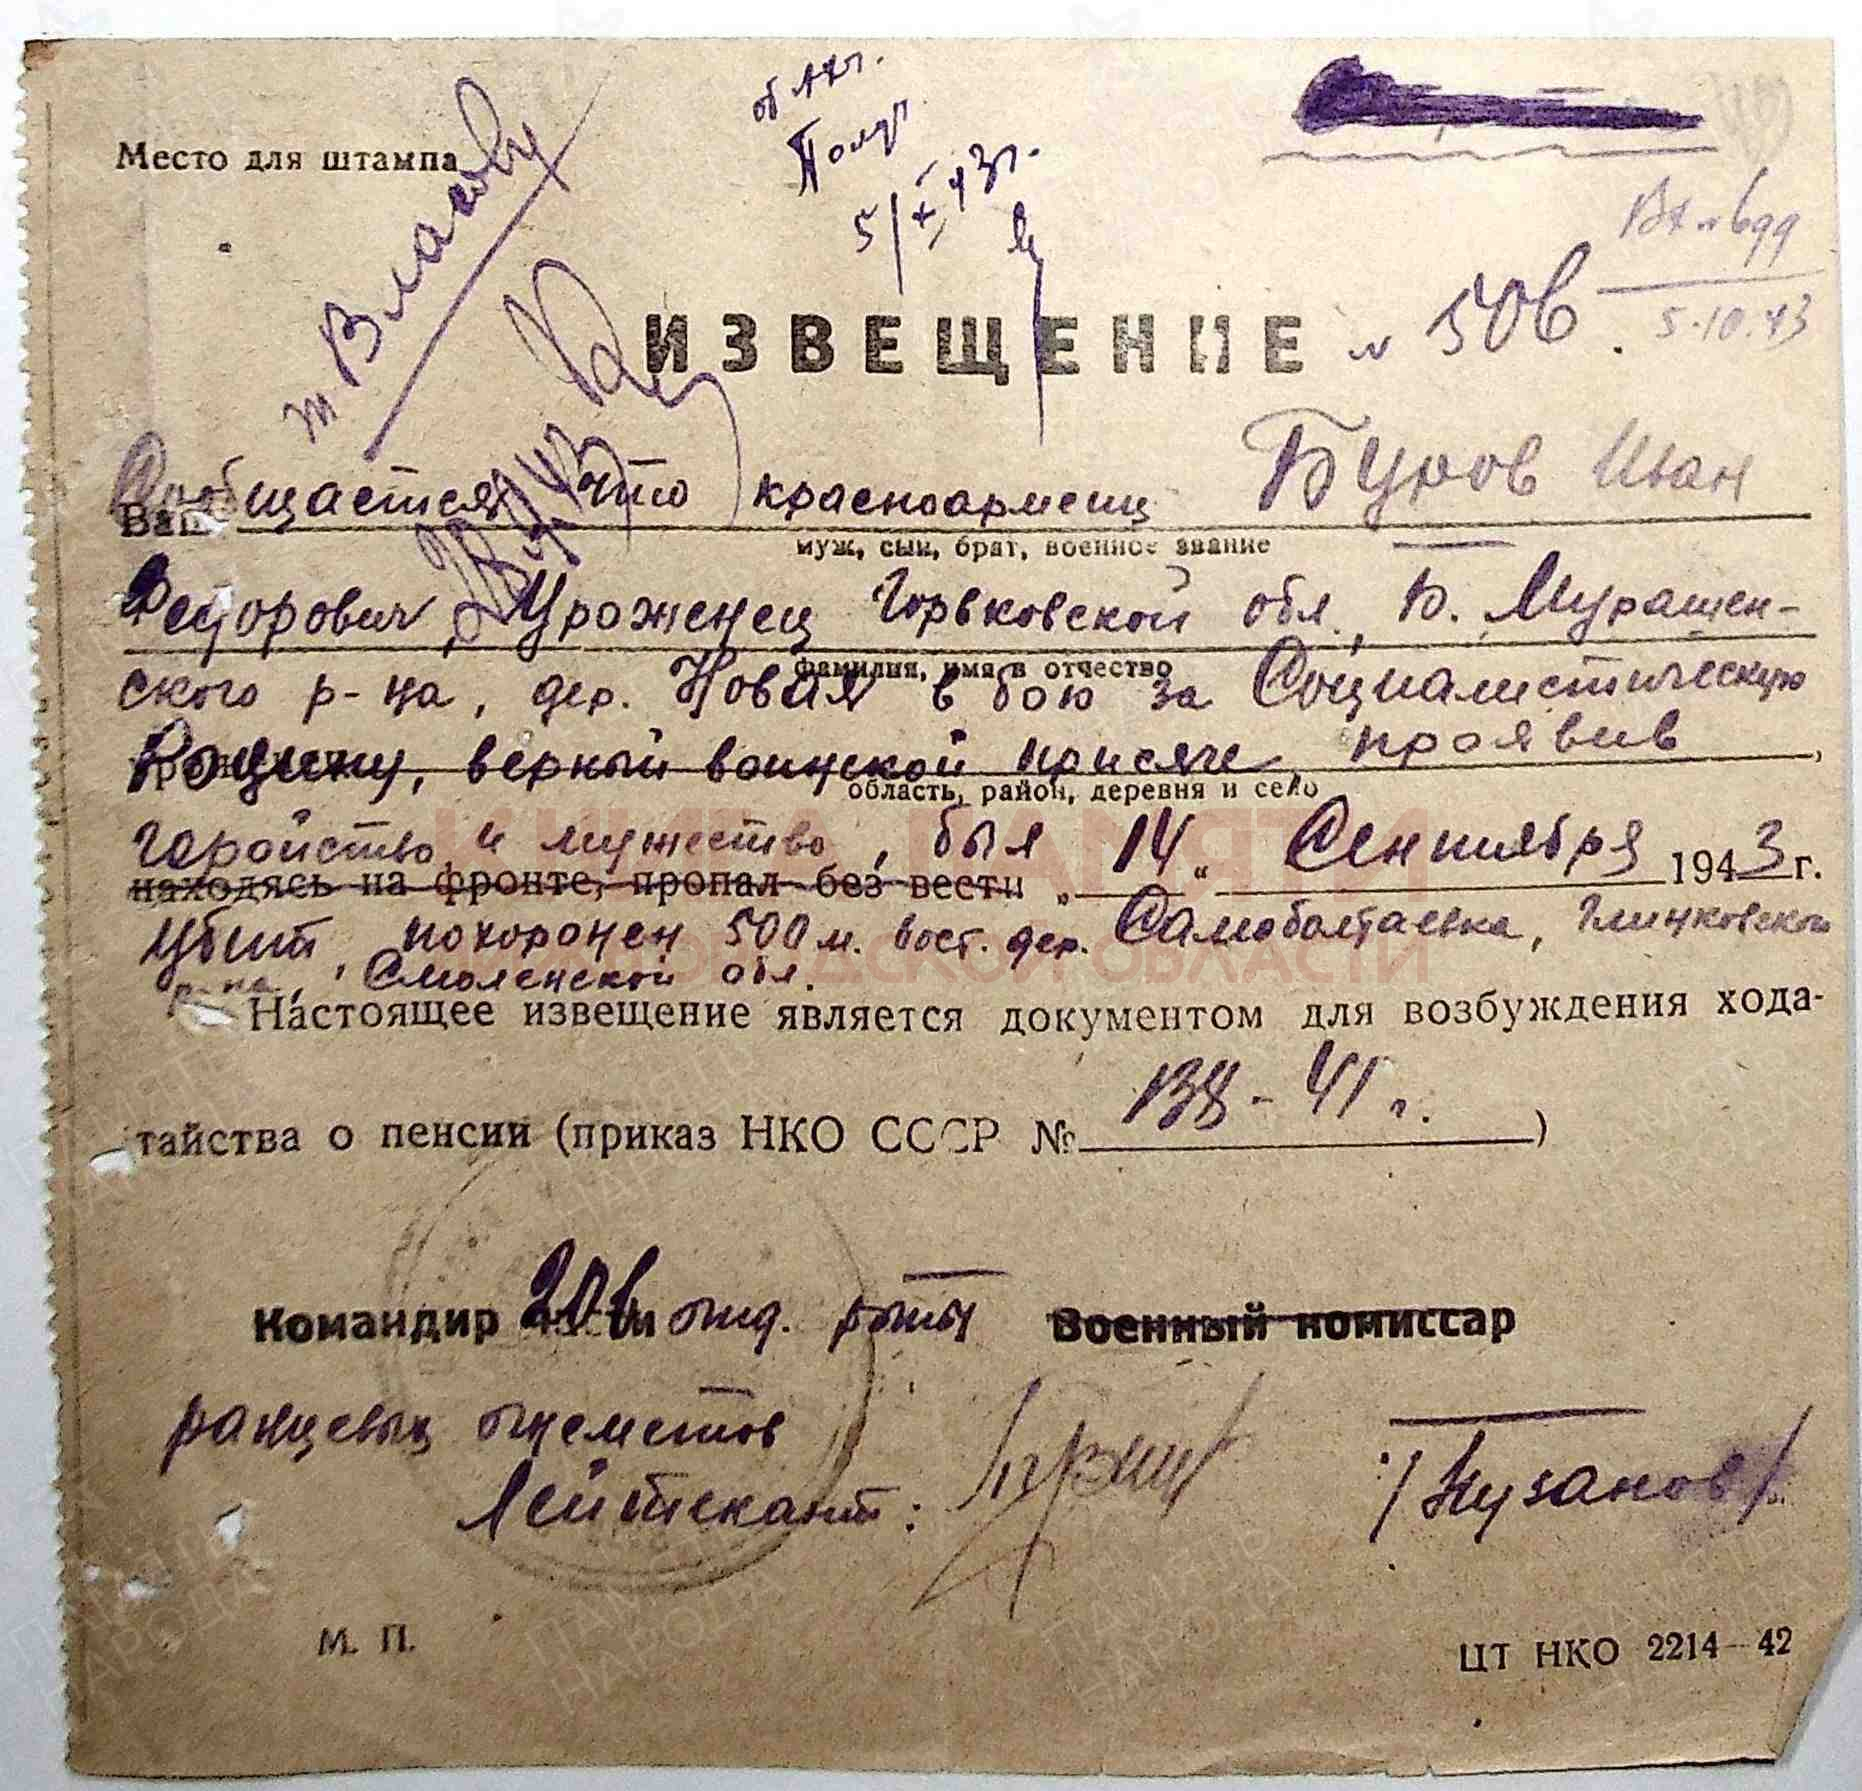 Место для штампа
т. Власову
Получ
5/X 43г.
Вх №699
5.10.43
ИЗВЕЩЕНИЕ № 50в.
Сообщается что красноармеец Буров Иван
Ваш
муж, сын, брат, военное звание
Федорович, Уроженец Горьковской обл., Б. Мурашен-
фамилия, имя и отчество
ского р-на, дер. Новая в бою за Социалистическую
Родину, верный воинской присяге, проявив ,
область, район, деревня и село
геройство и мужество, был „14“ Сентября 1943 г.
находясь на фронте, пропал без вести
убит, похоронен 500 м. вост. дер. Самоболтаевка, Глинковского
р-на, Смоленской обл.
Настоящее извещение является документом для возбуждения хода-
тайства о пенсии (приказ НКО СССР № 138 - 41 г. )
Командир отд. роты Военный комиссар
ранцевых огнеметов
Лейтенант: /Кузанов/
М. П.
ЦТ НКО 2214—42
КНИГА ПАМЯТИ
НИЖЕГОРОДСКОЙ ОБЛАСТИ
ПАМЯТЬ НАРОДА